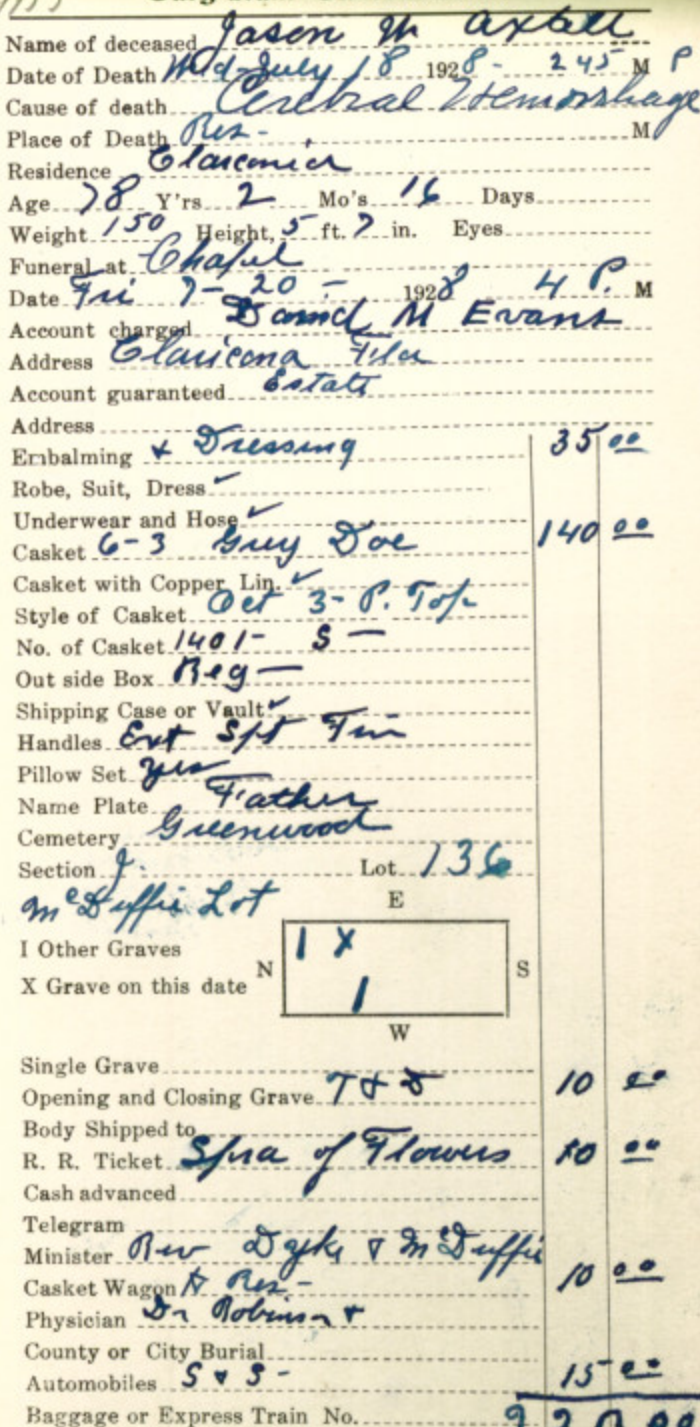 Name of deceased Jason M Axtell
Date of Death Wed-July 18 1928- 245 M P
Cause of death Cerebral Hemorrhage
Place of Death Res- M
Residence Clarconia
Age 78 Y'rs 2 Mo's 16 Days
Weight 150 Height, 5 ft. 7 in. Eyes
Funeral at Chapel
Date Fri 7-20- 1928 4 P. M
Account charged David M Evans
Address Claricona Fla
Account guaranteed Estate
Address
Embalming & Dressing 35 00
Robe, Suit, Dress ✓
Underwear and Hose ✓
Casket 6-3 Grey Doe 140 00
Casket with Copper Lin. ✓
Style of Casket Oct 3-P. Top
No. of Casket 1401- S -
Out side Box Reg -
Shipping Case or Vault ✓
Handles Ext Spt Fin
Pillow Set yes
Name Plate Father
Cemetery Greenwood
Section J. Lot 136
McDuffie Lot
E
I Other Graves 1 X
N S
X Grave on this date 1
W
Single Grave
Opening and Closing Grave T & D 10 00
Body Shipped to
R. R. Ticket Spra of Flowers 10 00
Cash advanced
Telegram
Minister Rev Dyke & McDuffie
Casket Wagon Res- 10 00
Physician Dr Robinson +
County or City Burial
Automobiles S & S- 15 00
Baggage or Express Train No.